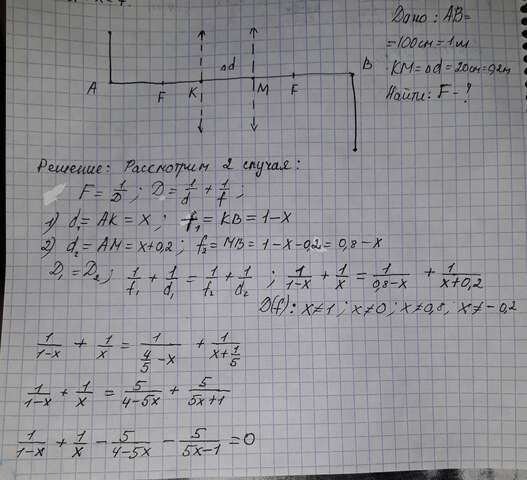 Дано: AB=
=100см=1м
KM=Δd=20см=0,2м
Найти: F-?
Δd
A F K M F B
Решение: Рассмотрим 2 случая:
F=1/D; D=1/d+1/f;
1) d₁=AK=x; f₁=KB=1-x
2) d₂=AM=x+0,2; f₂=MB=1-x-0,2=0,8-x
D₁=D₂; 1/f₁+1/d₁=1/f₂+1/d₂; 1/(1-x)+1/x=1/(0,8-x)+1/(x+0,2)
D(f): x≠1; x≠0; x≠0,8; x≠-0,2
1/(1-x)+1/x=1/(4/5-x)+1/(x+1/5)
1/(1-x)+1/x=5/(4-5x)+5/(5x+1)
1/(1-x)+1/x-5/(4-5x)-5/(5x-1)=0